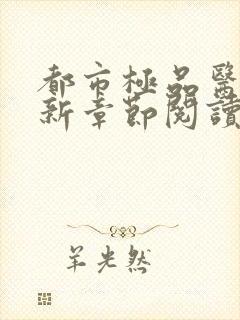 都市極品醫
新章節閱讀
羊光然